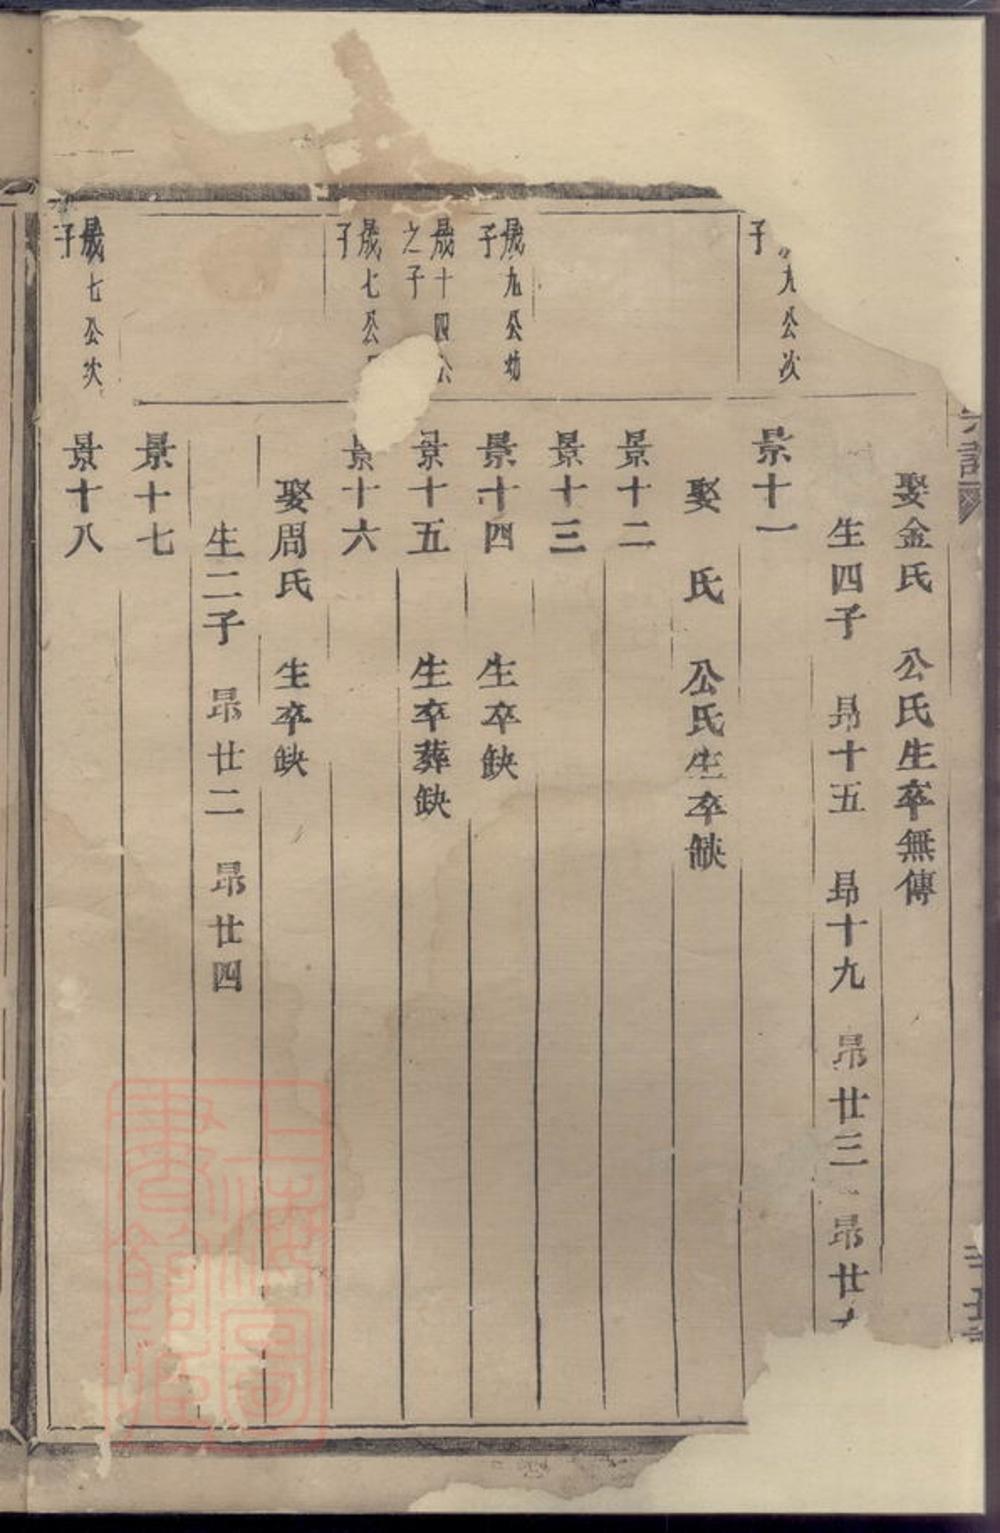 娶金氏　公氏生卒無傳
生四子　昻十五　昻十九　昻廿三　昻廿
九公次子
景十一
娶　氏　公氏生卒缺
景十二
景十三
晟九公幼子
景十四　生卒缺
晟十四公之子
景十五　生卒葬缺
晟七公
子
景十六
娶周氏　生卒缺
生二子　昻廿二　昻廿四
景十七
晟七公次子
景十八
上海圖書館藏